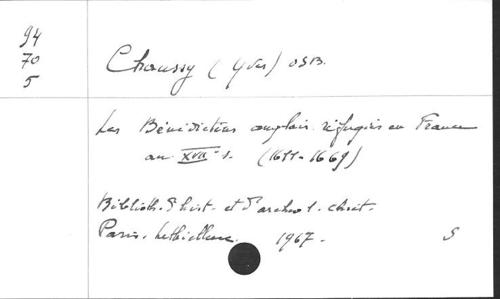 94
70
5
Chaussy (Yves) OSB.
Les Bénédictins anglais réfugiés en France
au XVII e s. (1611-1669)
Biblioth. d'hist. et d'archeol. chret.
Paris. Lethielleux. 1967.
S